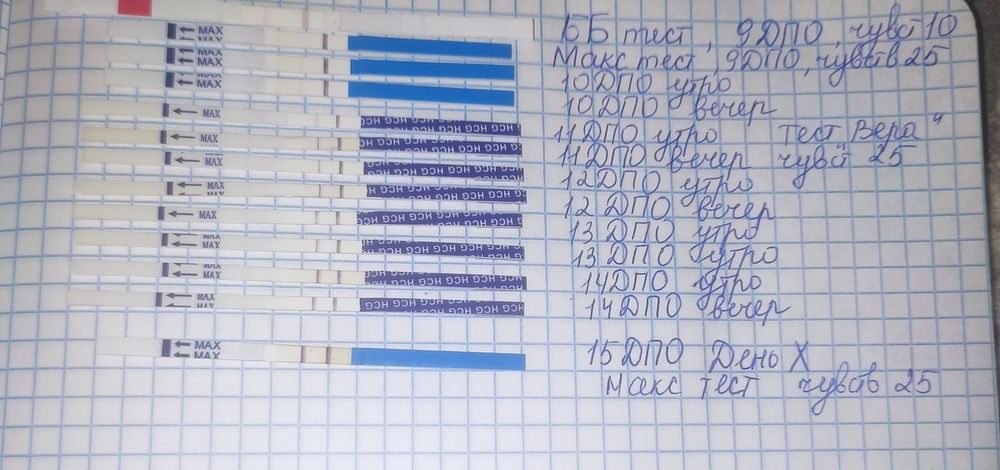 ББ тест, 9ДПО, чувст 10
Макс тест, 9ДПО, чувств 25
10ДПО утро
10ДПО вечер
11ДПО утро тест „Вера"
11ДПО вечер чувст 25
12ДПО утро
12ДПО вечер
13ДПО утро
13ДПО утро
14ДПО утро
14ДПО вечер
15ДПО День X
Макс тест чувств 25
MAX
MAX
MAX
MAX
MAX
MAX
MAX
MAX
MAX
MAX
MAX
MAX
MAX
HCG HCG HCG HCG
HCG HCG HCG HCG
HCG HCG HCG HCG
HCG HCG HCG HCG
HCG HCG HCG HCG
HCG HCG HCG HCG
HCG HCG HCG HCG
HCG HCG HCG HCG